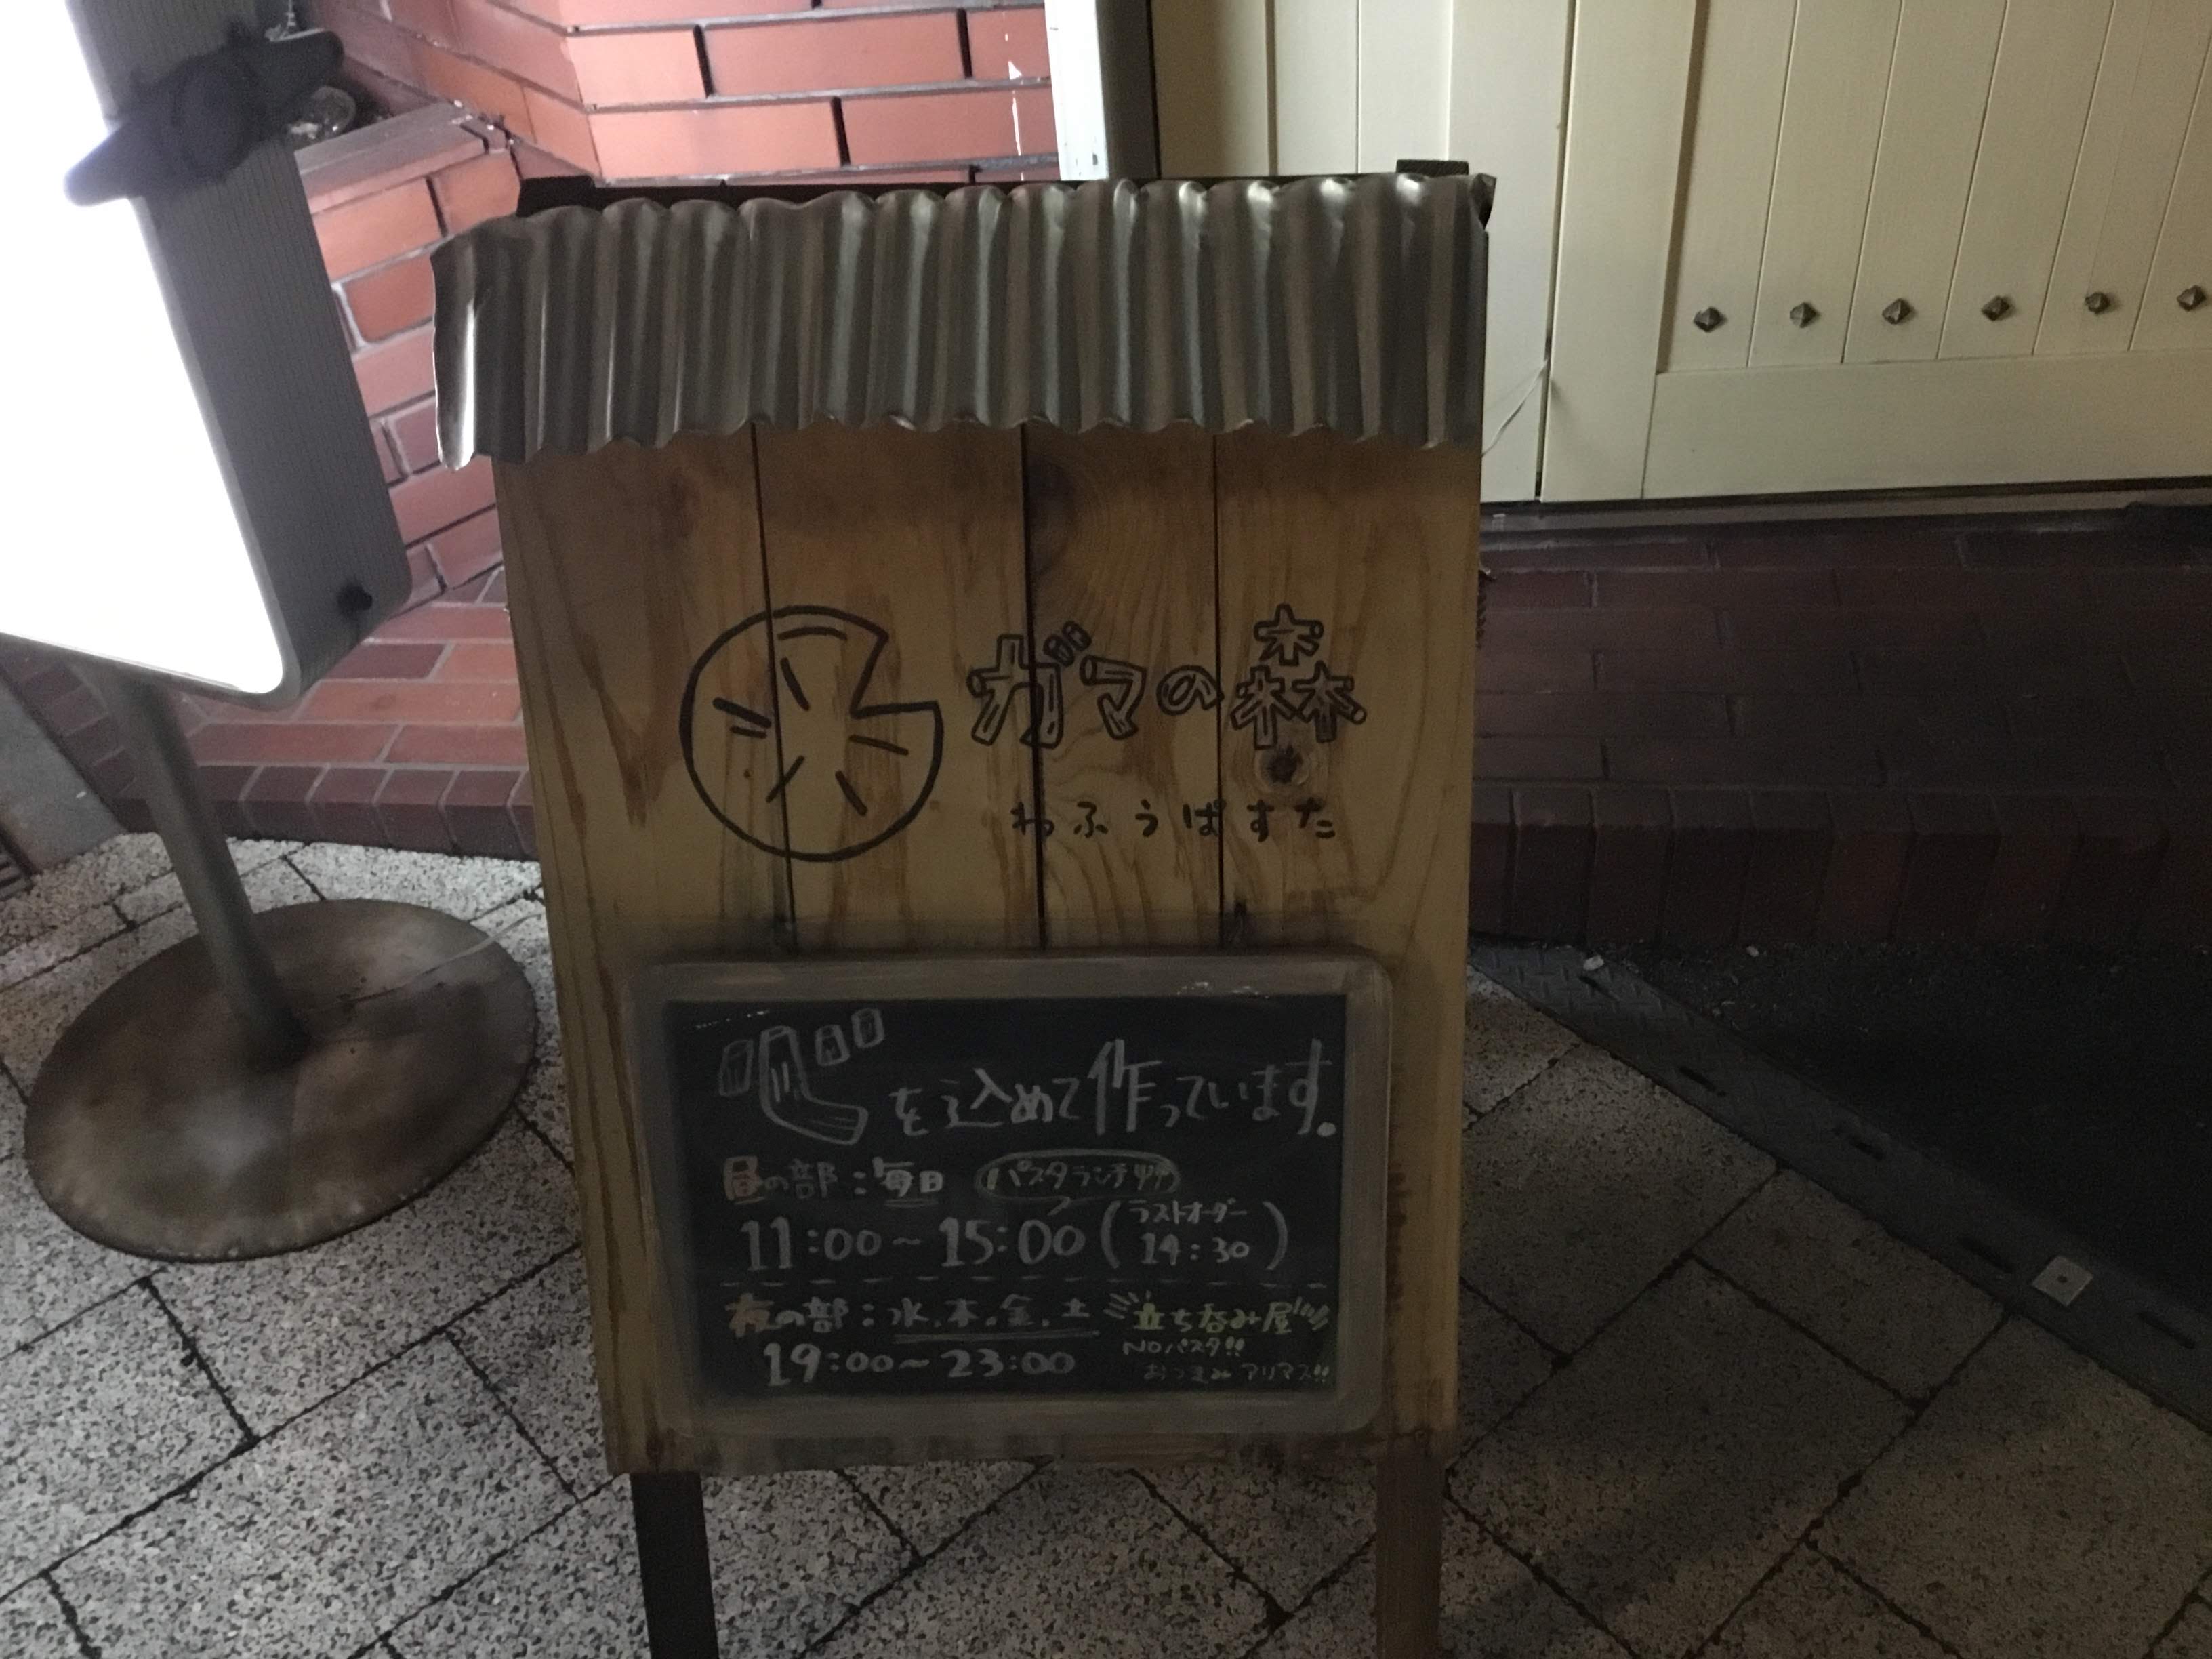 ガマの森
わふうぱすた
心を込めて作っています。
昼の部:毎日 パスタランチ
11:00~15:00(ラストオーダー 14:30)
夜の部:水.木.金.土 立ち呑み屋
NOパスタ!!
19:00~23:00
おつまみアリマス!!